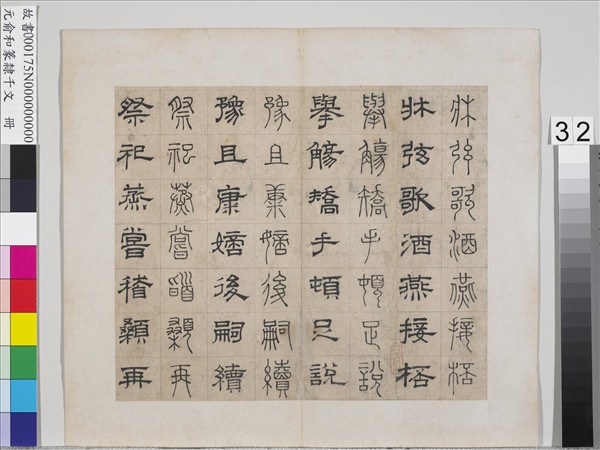 牀弦歌酒燕接桮
牀弦歌酒燕接桮
舉觴矯手頓足說
舉觴矯手頓足說
豫且康嫡後嗣續
豫且康嫡後嗣續
祭祀蒸嘗稽顙再
祭祀蒸嘗稽顙再
故書000175N000000000
元俞和篆隸千文 冊
32